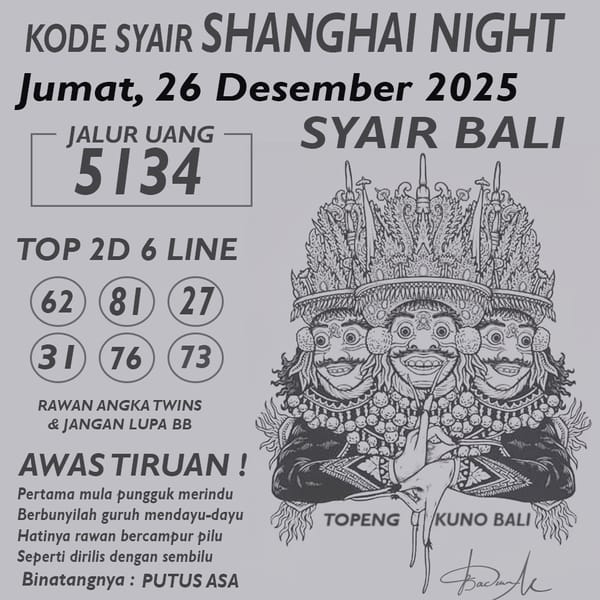 KODE SYAIR SHANGHAI NIGHT
Jumat, 26 Desember 2025
SYAIR BALI
JALUR UANG
5134
TOP 2D 6 LINE
62 81 27
31 76 73
RAWAN ANGKA TWINS
& JANGAN LUPA BB
AWAS TIRUAN !
Pertama mula pungguk merindu
Berbunyilah guruh mendayu-dayu
Hatinya rawan bercampur pilu
Seperti dirilis dengan sembilu
Binatangnya : PUTUS ASA
TOPENG KUNO BALI